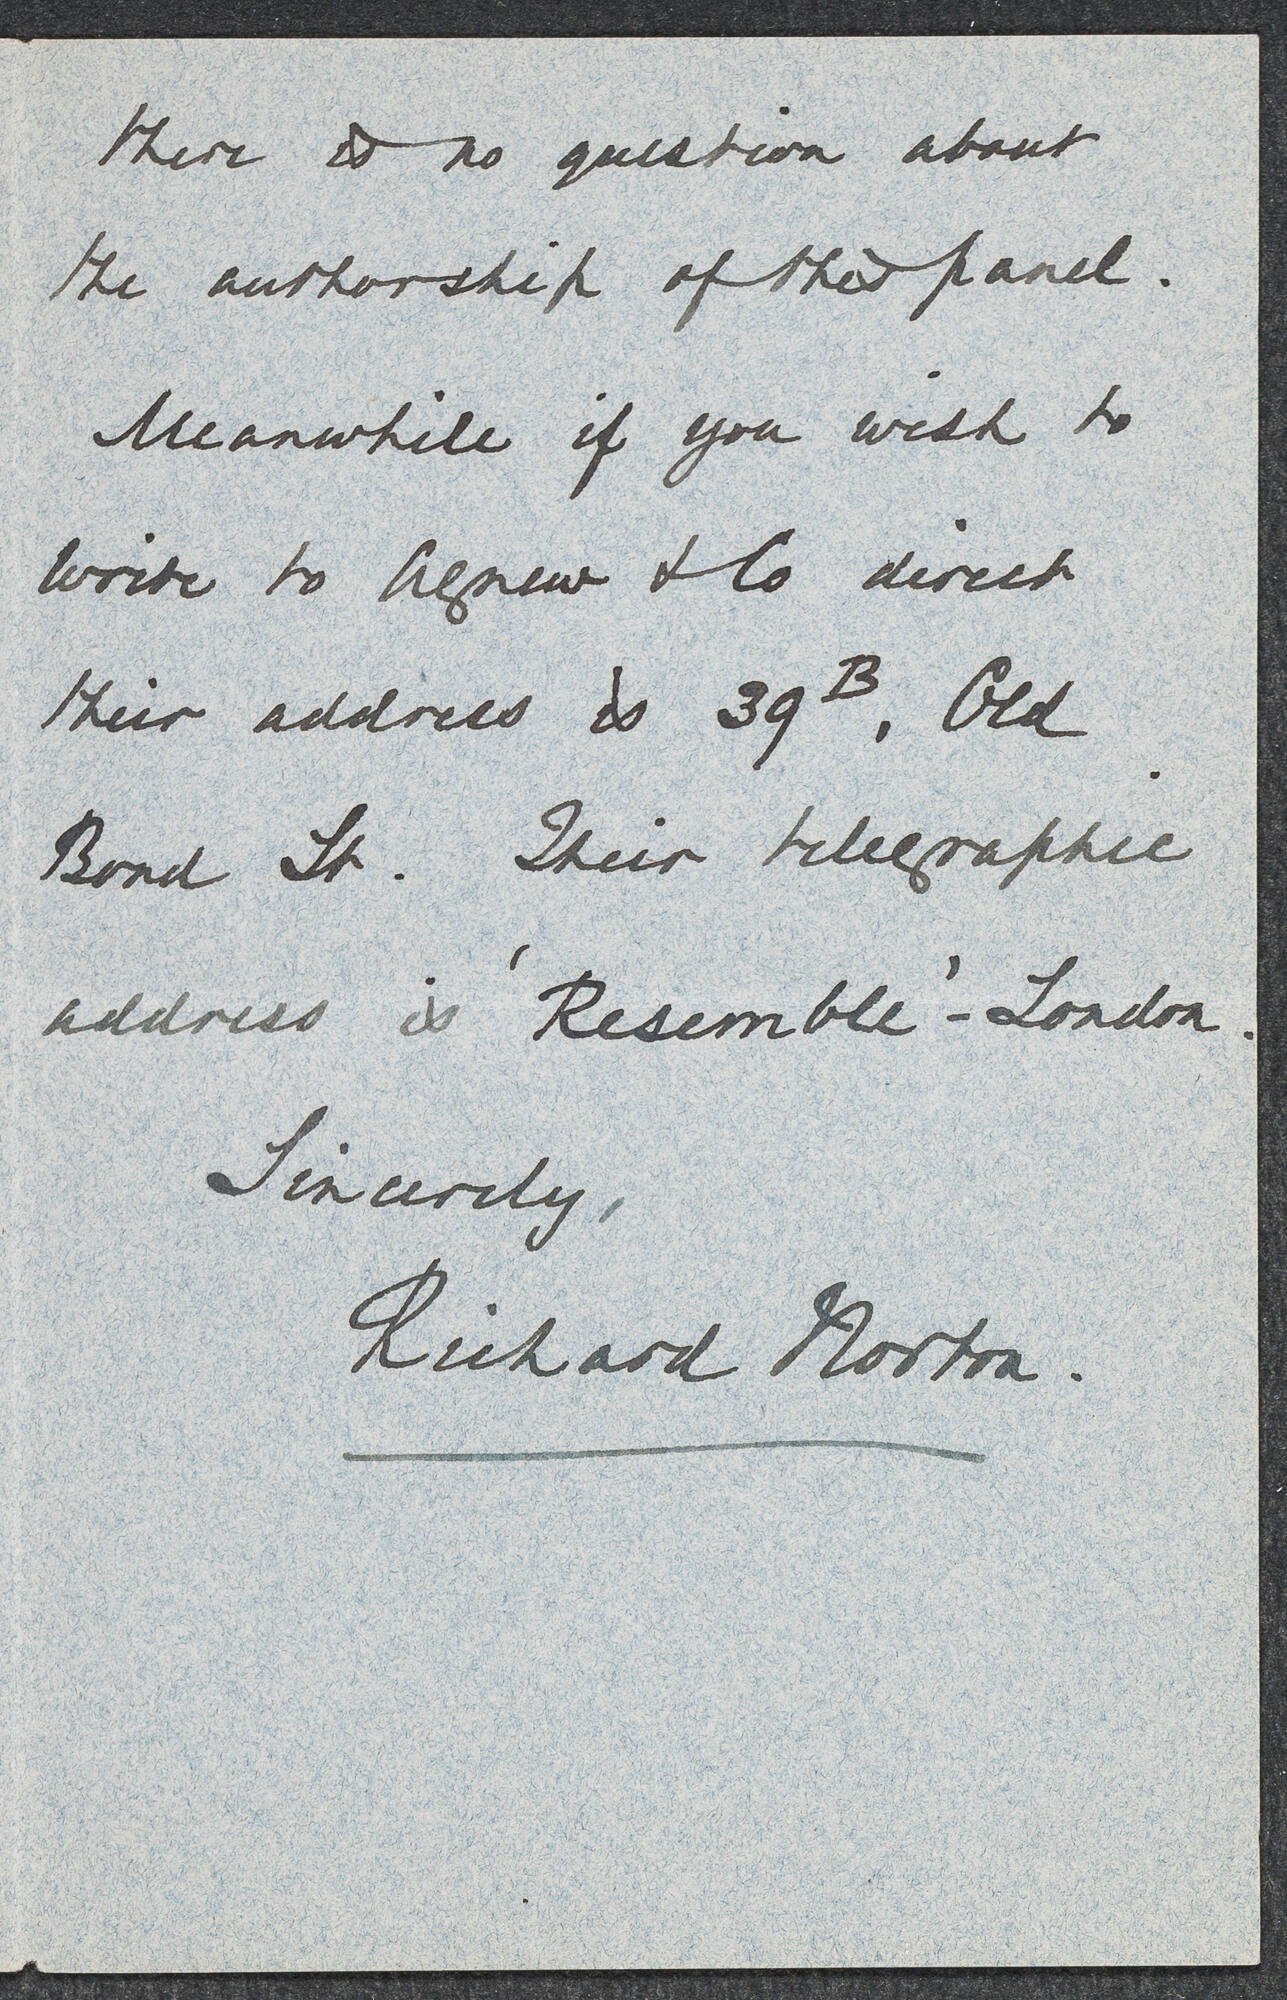 there is no question about
the authorship of this panel.
Meanwhile if you wish to
write to Agnew & Co direct
their address is 39ᴮ, Old
Bond St. Their telegraphic
address is 'Resemble' - London.
Sincerely,
Richard Norton.